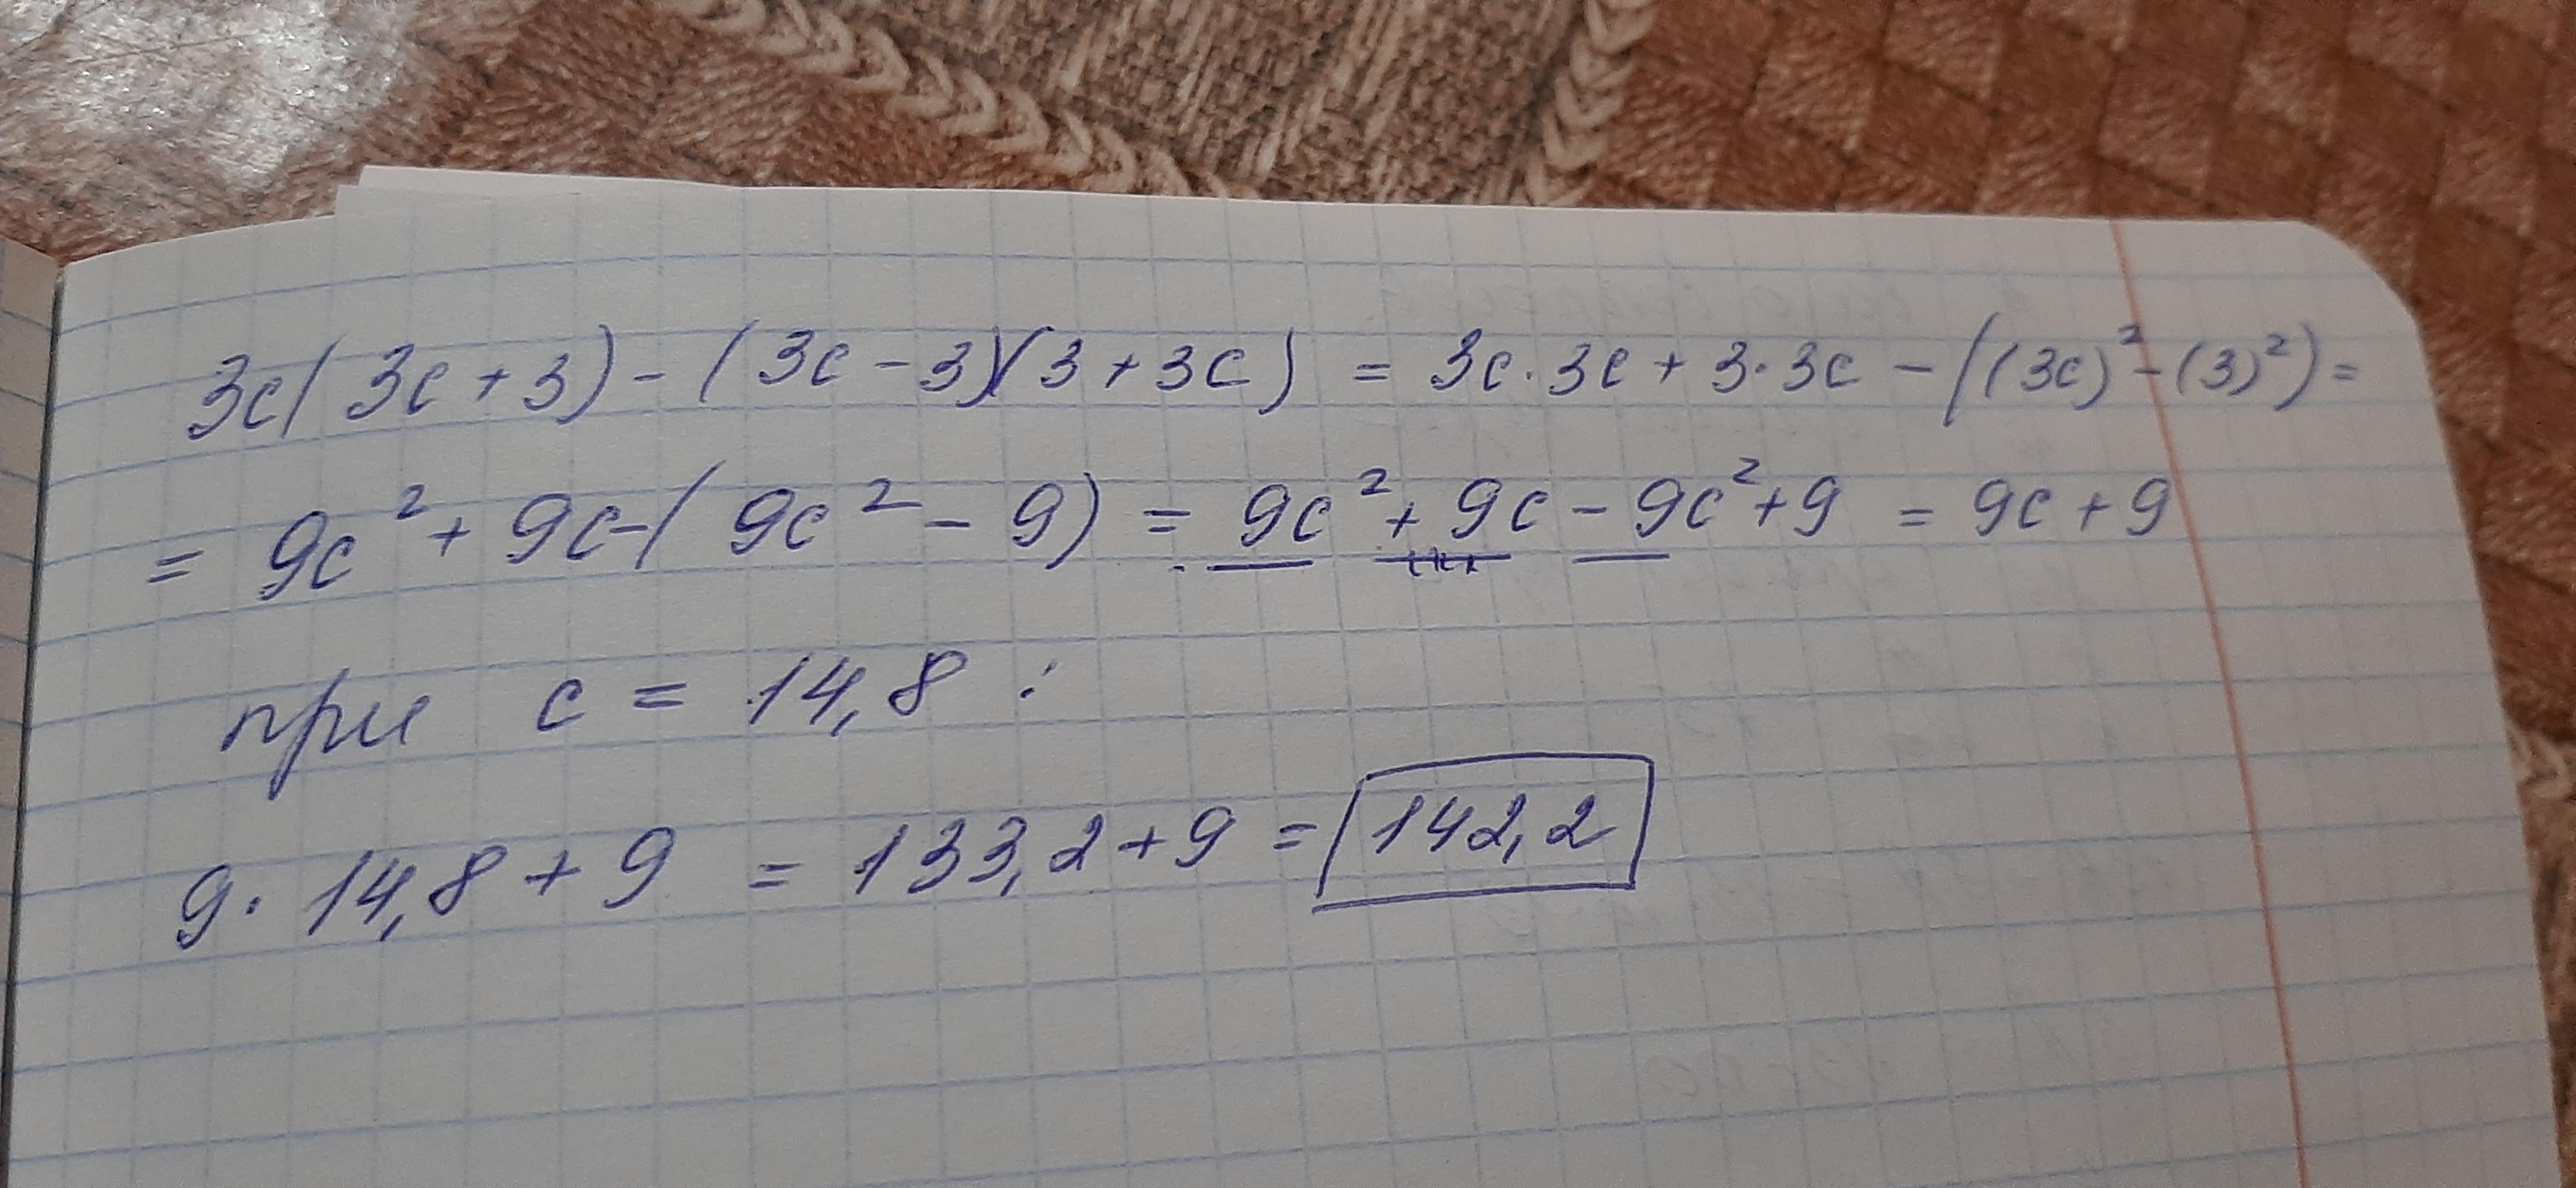 3c(3c+3)-(3c-3)(3+3c) = 3c·3c+3·3c-((3c)²-(3)²)=
= 9c²+9c-(9c²-9) = 9c²+9c-9c²+9 = 9c+9
при c = 14,8 :
9·14,8+9 = 133,2+9 = 142,2